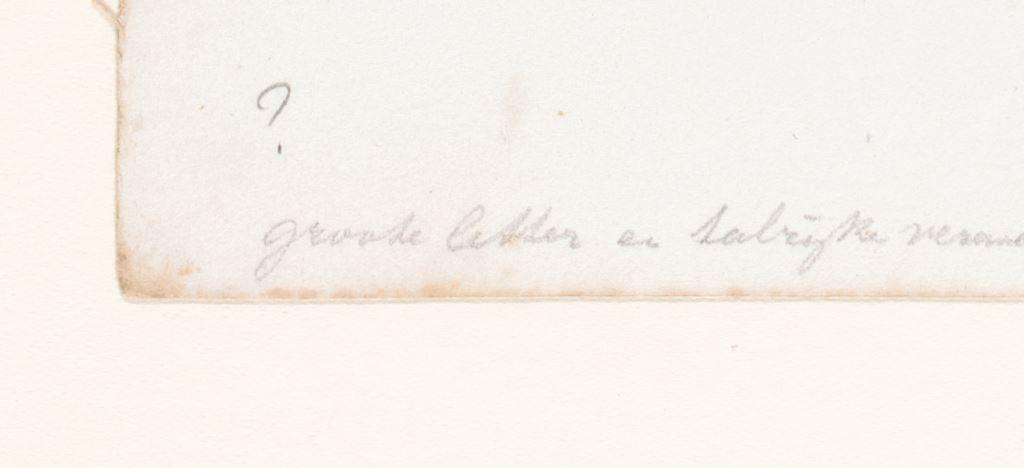 ?
groote letter en talrijke